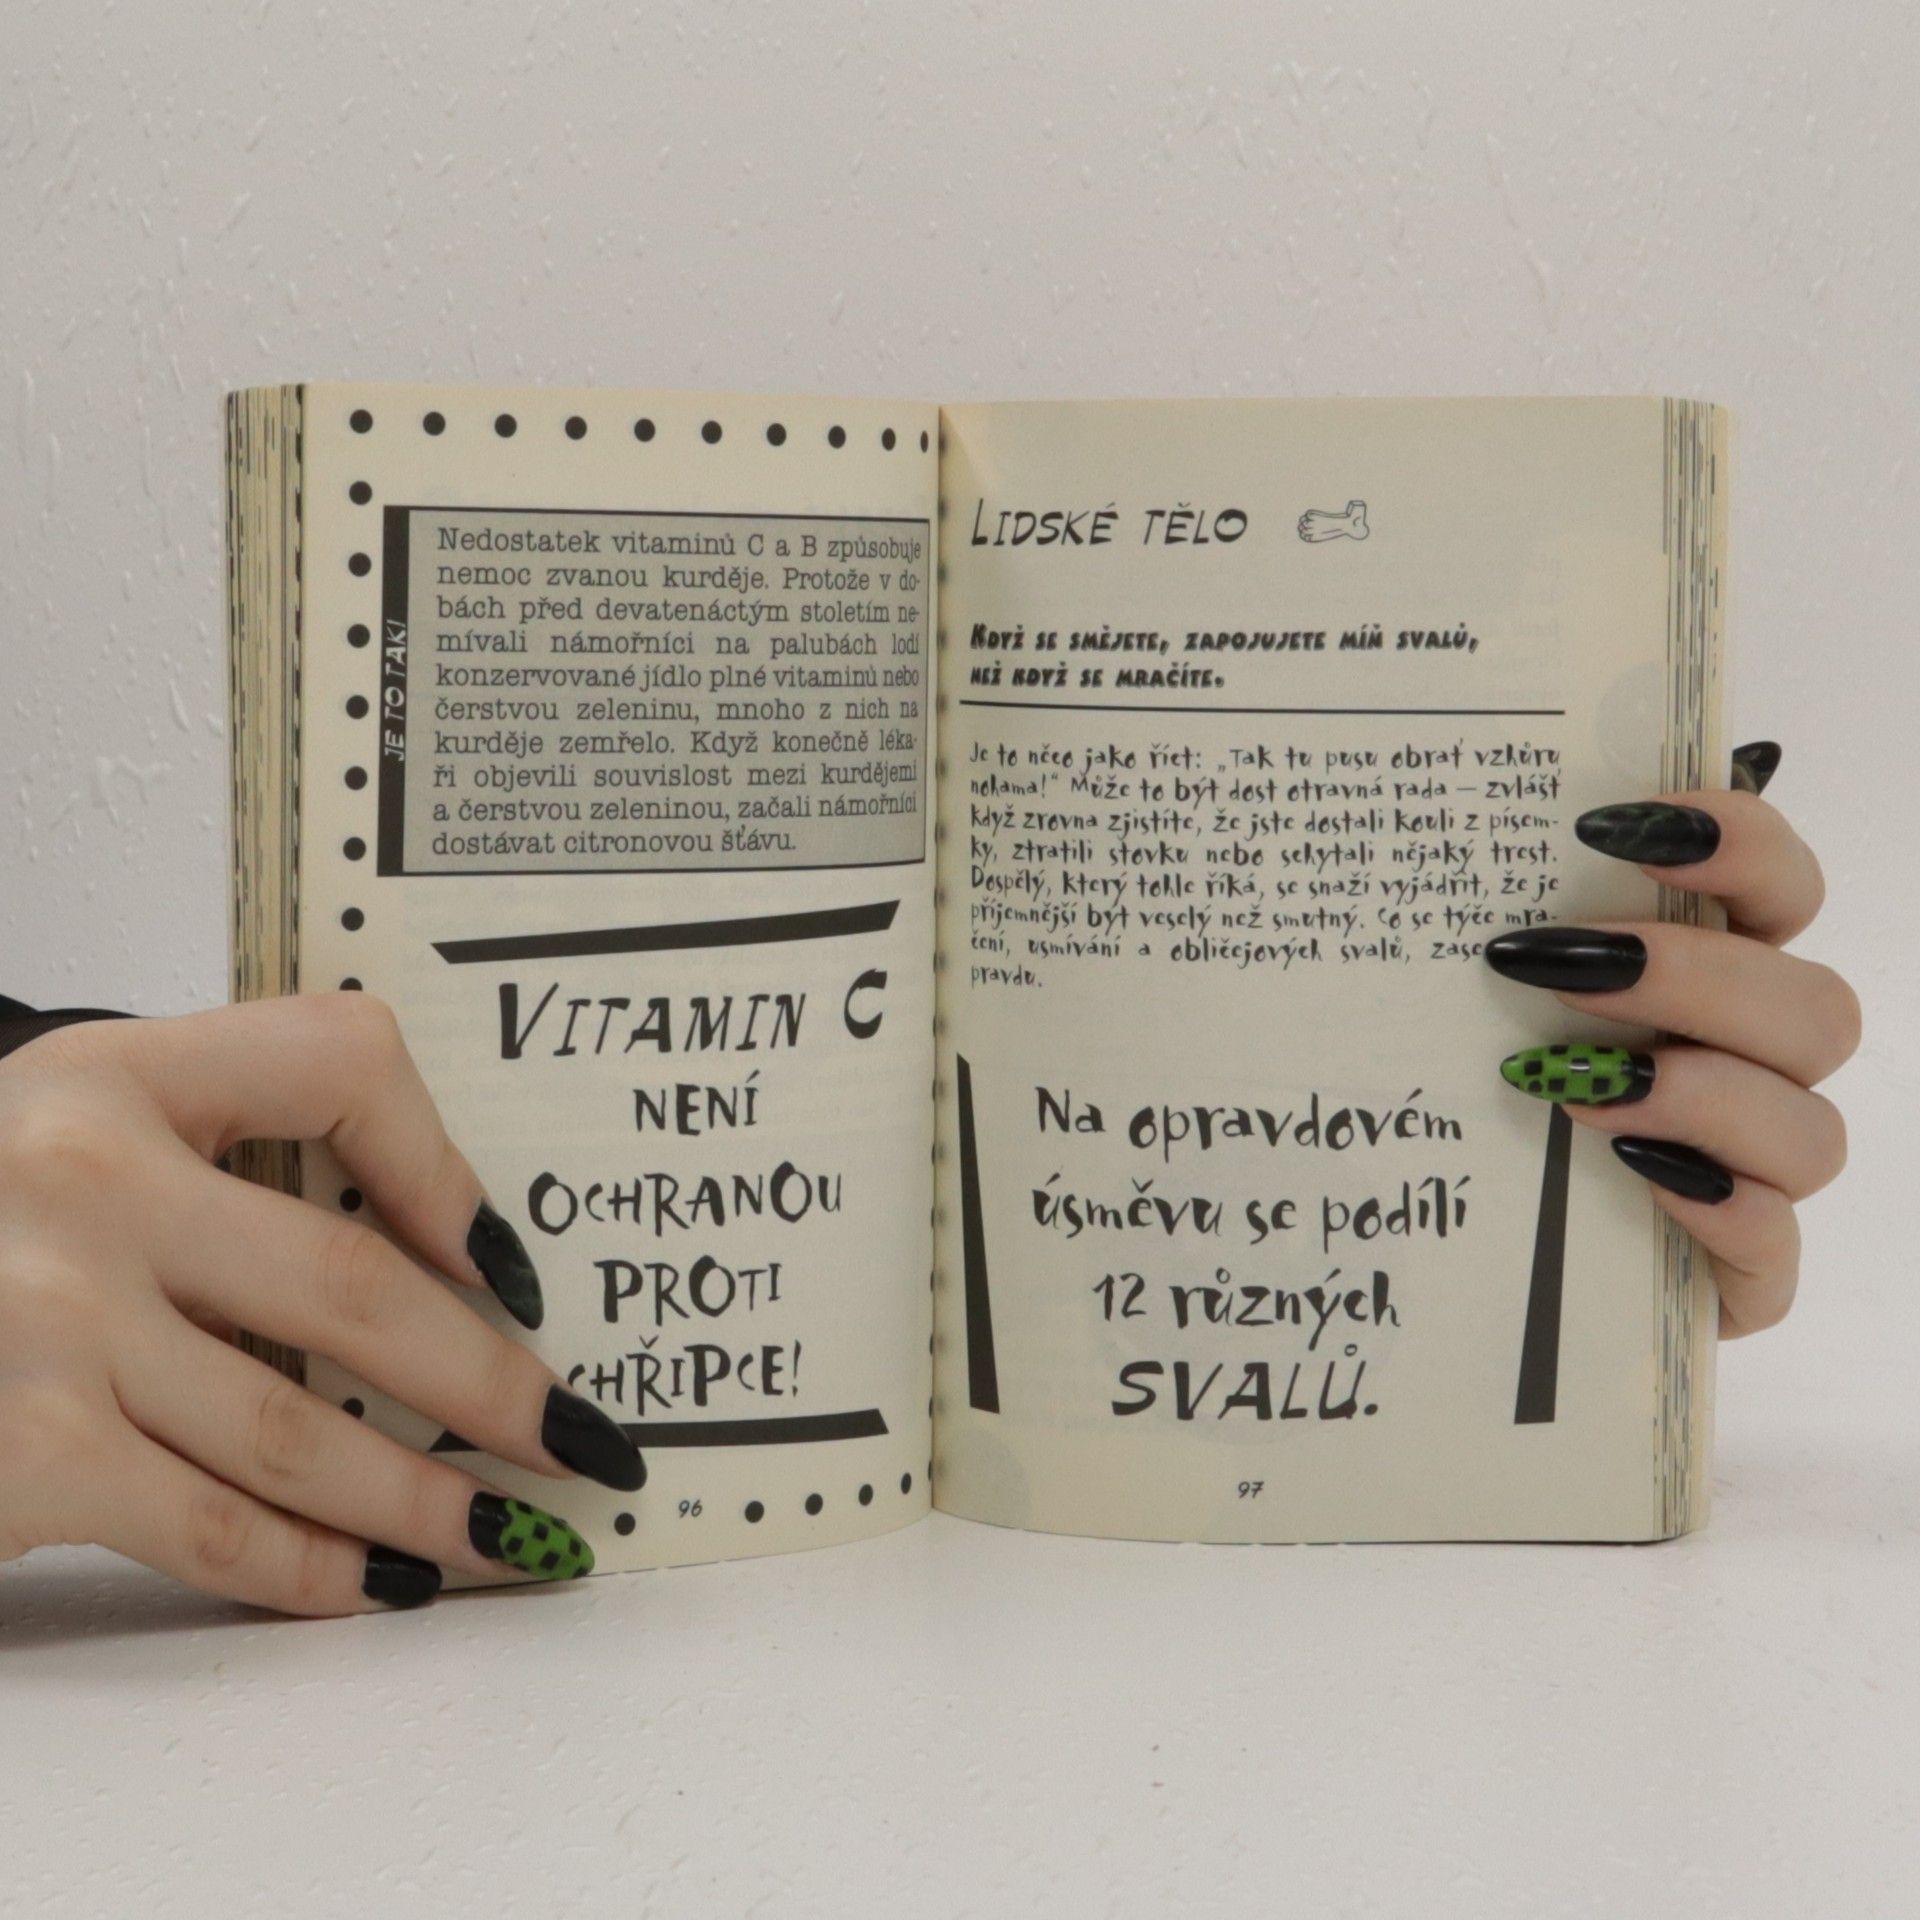 JE TO TAK!
Nedostatek vitaminů C a B způsobuje
nemoc zvanou kurděje. Protože v do-
bách před devatenáctým stoletím ne-
mívali námořníci na palubách lodí
konzervované jídlo plné vitaminů nebo
čerstvou zeleninu, mnoho z nich na
kurděje zemřelo. Když konečně léka-
ři objevili souvislost mezi kurdějemi
a čerstvou zeleninou, začali námořníci
dostávat citronovou šťávu.
VITAMIN C
NENÍ
OCHRANOU
PROTI
CHŘIPCE!
96
LIDSKÉ TĚLO
KDYŽ SE SMĚJETE, ZAPOJUJETE MÍŇ SVALŮ,
NEŽ KDYŽ SE MRAČÍTE.
Je to něco jako říct: „Tak tu pusu obrať vzhůru
nohama!“ Může to být dost otravná rada — zvlášť
když zrovna zjistíte, že jste dostali kouli z písem-
ky, ztratili stovku nebo schytali nějaký trest.
Dospělý, který tohle říká, se snaží vyjádřit, že je
příjemnější být veselý než smutný. Co se týče mra-
čení, usmívání a obličejových svalů, zase
pravdu.
Na opravdovém
úsměvu se podílí
12 různých
SVALŮ.
97